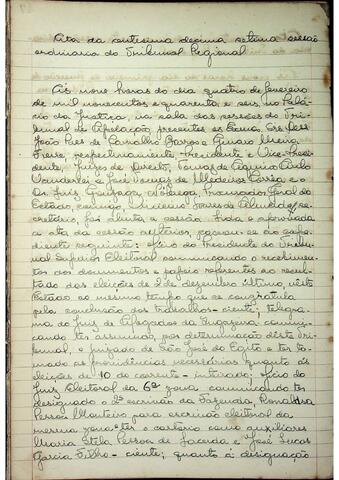 Ata da centesima decima setima sessão
ordinaria do Tribunal Regional
Ás nove horas do dia quatro de fevereiro
de mil novecentos e quarenta e seis, no Palá-
cio da Justiça, na sala das sessões do Tri-
bunal de Apelação, presentes os Exmos. Srs. Des.
João Paes de Carvalho Barros e Genaro
Freire, respectivamente, Presidente e Vice-Presi-
dente, Juizes de Direito, Tomaz de Aquino
e José de Medeiros Corrêa e o
Dr. Luiz Procurador Geral do
Estado, comigo, Torres de se-
cretário, foi aberta a sessão. Lida e aprovada
a ata da sessão anterior, passou-se ao expe-
diente seguinte: oficio do Presidente do Tribunal
Superior Eleitoral comunicando o recebimento
dos documentos e papeis referentes ao resul-
tado das eleições de 2 de dezembro último, neste
Estado ao mesmo tempo que se congratula
pela conclusão dos trabalhos - ciente; telegra-
ma do Juiz de Afogados da Ingazeira comuni-
cando ter assumido, por determinação deste Tri-
bunal, o juizado de São José do Egito e ter to-
mado as providências necessárias quanto ás
eleições de 10 do corrente - inteirado; oficio do
Juiz Eleitoral da 6ª zona comunicando ter
designado o 2º escrivão da Fazenda,
Pessoa Monteiro para escrivão eleitoral da
mesma zona e ter o cartorio como auxiliares
Maria Stela Pessoa de Lacerda e José Lucas
Garcia Filho - ciente; quanto á designação